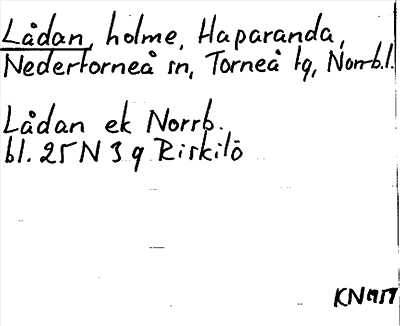 Lådan, holme, Haparanda,
Nedertorneå sn, Torneå tg, Norrb.l.
Lådan ek Norrb.
bl. 25 N 3 g Riskilö
KN